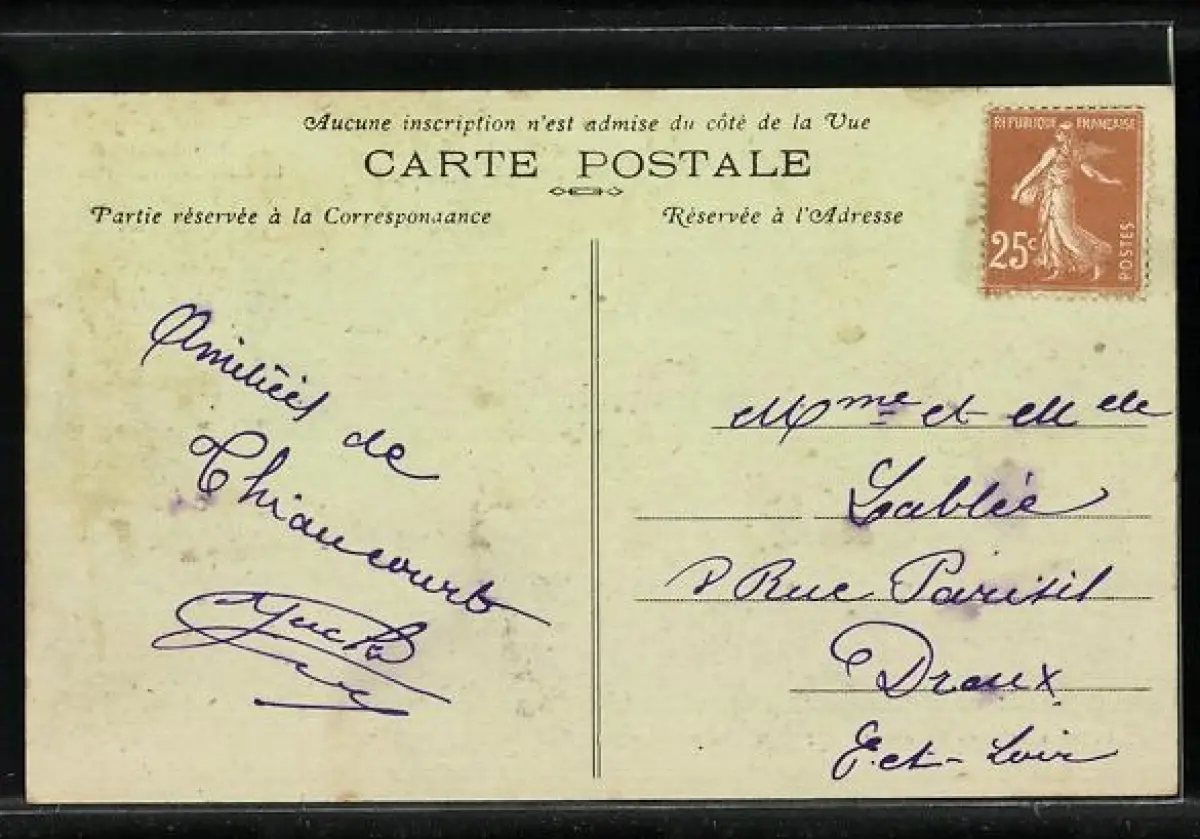 Aucune inscription n'est admise du côté de la Vue
CARTE POSTALE
Partie réservée à la Correspondance
Réservée à l'Adresse
REPUBLIQUE FRANÇAISE
25c
POSTES
Amitiées
de
Thiaucourt
Mme et Melle
Lablée
Rue Parisis
Dreux
E.et-Loir